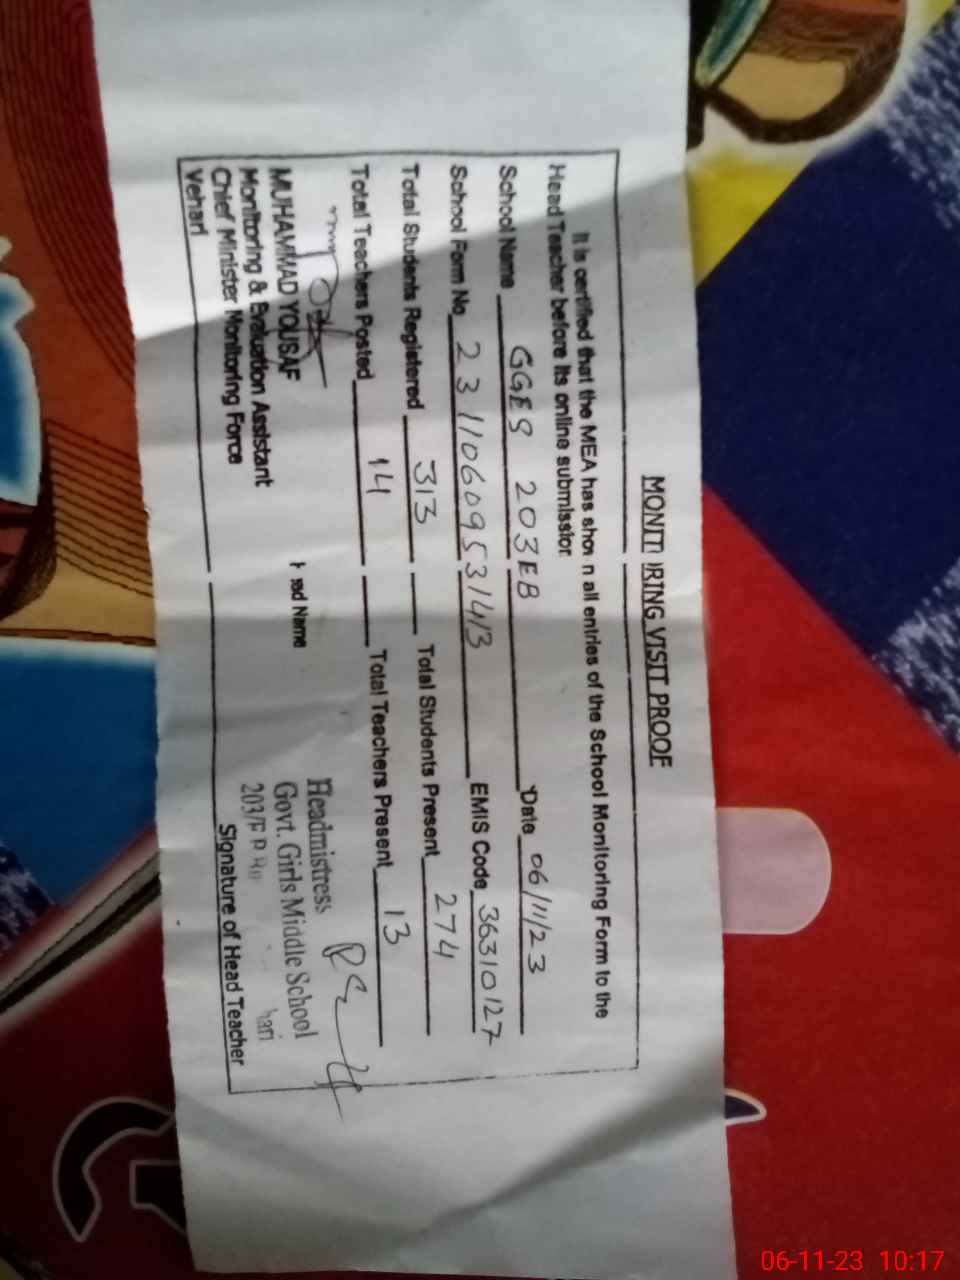 MONITORING VISIT PROOF
It is certified that the MEA has shown all entries of the School Monitoring Form to the
Head Teacher before its online submission
School Name GGES 203EB Date 06/11/23
School Form No. 23110609531413 EMIS Code 36310127
Total Students Registered 313 Total Students Present 274
Total Teachers Posted 14 Total Teachers Present 13
MUHAMMAD YOUSAF
Monitoring & Evaluation Assistant
Chief Minister Monitoring Force
Vehari
Head Name
Headmistress
Govt. Girls Middle School
203/
Signature of Head Teacher
06-11-23 10:17